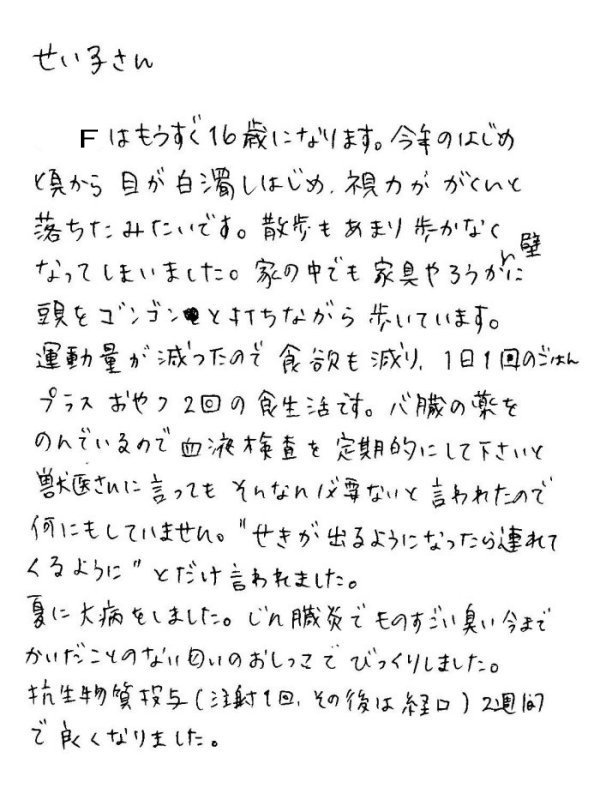 せい子さん
Fはもうすぐ16歳になります。今年のはじめ
頃から目が白濁しはじめ、視力ががくいと
落ちたみたいです。散歩もあまり歩かなく
なってしまいました。家の中でも家具やろうか壁に
頭をゴンゴンと打ちながら歩いています。
運動量が減ったので食欲も減り、1日1回のごはん
プラスおやつ2回の食生活です。心臓の薬を
のんでいるので血液検査を定期的にして下さいと
獣医さんに言ってもそんなん必要ないと言われたので
何にもしていません。"せきが出るようになったら連れて
くるように"とだけ言われました。
夏に大病をしました。じん臓炎でものすごい臭い今まで
かいだことのない匂いのおしっこでびっくりしました。
抗生物質投与(注射1回、その後は経口)2週間
で良くなりました。